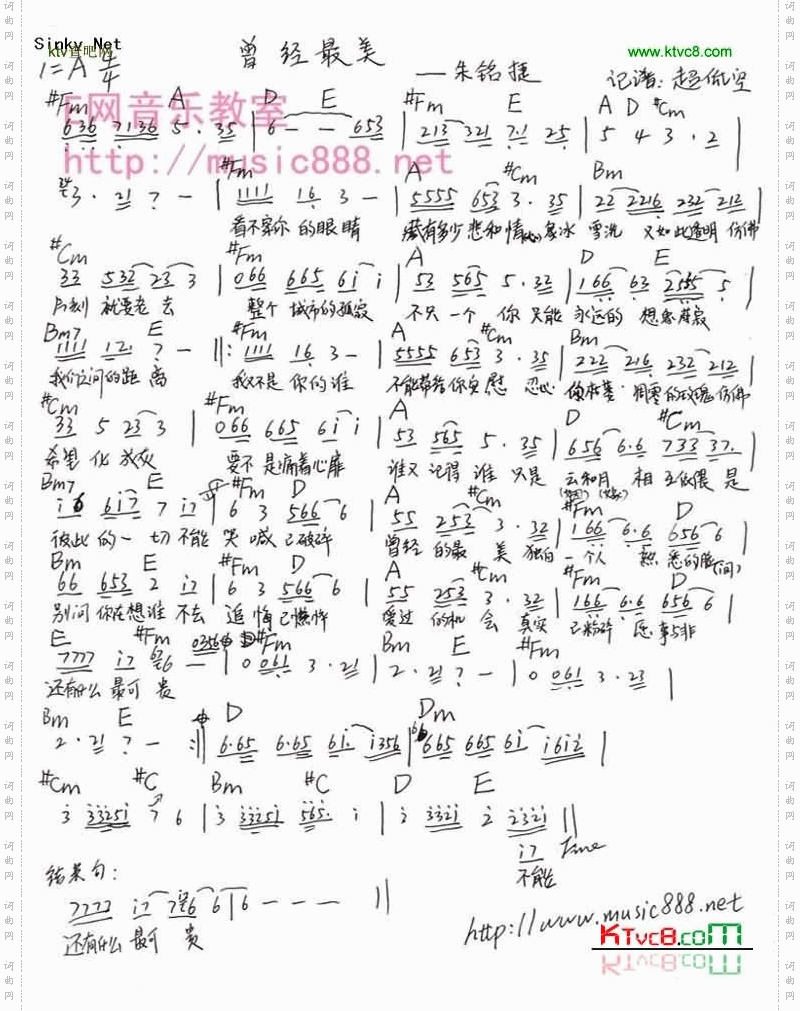 Sinky.Net
ktv音吧网
曾经最美
www.ktvc8.com
1=A 4/4
——朱铭捷
记谱:超低空
#Fm A D E #Fm E A D #Cm
E网音乐教室
636 7136 5·35 | 6 - - 653 | 213 321 7·1 25 | 5 4 3·2 |
http://music888.net
#Fm A #Cm Bm
3·21 7 - | 1111 16 3 - | 5555 653 3·35 | 22 2216 232 212 |
看不穿你的眼睛 藏有多少悲和情 像冰雪况 又如此透明 仿佛
#Cm #Fm A D E
33 532 23 3 | 066 665 61 1 | 53 565 5·32 | 166 63 2555 5 |
片刻就要老去 整个城市的孤寂 不只一个你 只能永远的想象
Bm7 E #Fm A #Cm Bm
1111 121 7 - ‖: 1111 16 3 - | 5555 653 3·35 | 222 216 232 212 |
我们之间的距离 我不是你的谁 不能带给你安慰 忍心 凋零的玫瑰 仿佛
#Cm #Fm A D #Cm
33 5 23 3 | 066 665 61 1 | 53 565 5·35 | 656 6·6 733 37· |
希望化成灰 要不是痛着心扉 谁又记得谁 只是云和月 相互依偎 是
Bm7 E #Fm D A #Cm #Fm D
617 7 17 | 6 3 566 6 | 55 253 3·32 | 166 6·6 656 6 |
彼此的一切 不能哭喊 已破碎 曾经的最美 独自一个人 熟悉的
Bm E #Fm D A #Cm #Fm D
66 653 2 17 | 6 3 566 6 | 55 253 3·32 | 166 6·6 656 6 |
别问你在想谁 不去追悔 已憔悴 爱过的机会 真实已粉碎 愿事与非
E #Fm #Fm Bm E #Fm
7777 17 6 - | 0 061 3·21 | 2·21 7 - | 0 061 3·23 |
还有什么最可贵
Bm E D Dm
2·21 7 - :‖ 6·65 6·65 61· 1356 | 665 665 61 1612 |
#Cm #C Bm #C D E
3 33251 7 6 | 3 33251 565· 1 | 2 3321 2 2321 ‖
17 Fine
不能
结束句:
7777 17 6 6 | 6 - - - ‖
还有什么最可贵
http://www.music888.net
KTvc8.com
词曲网